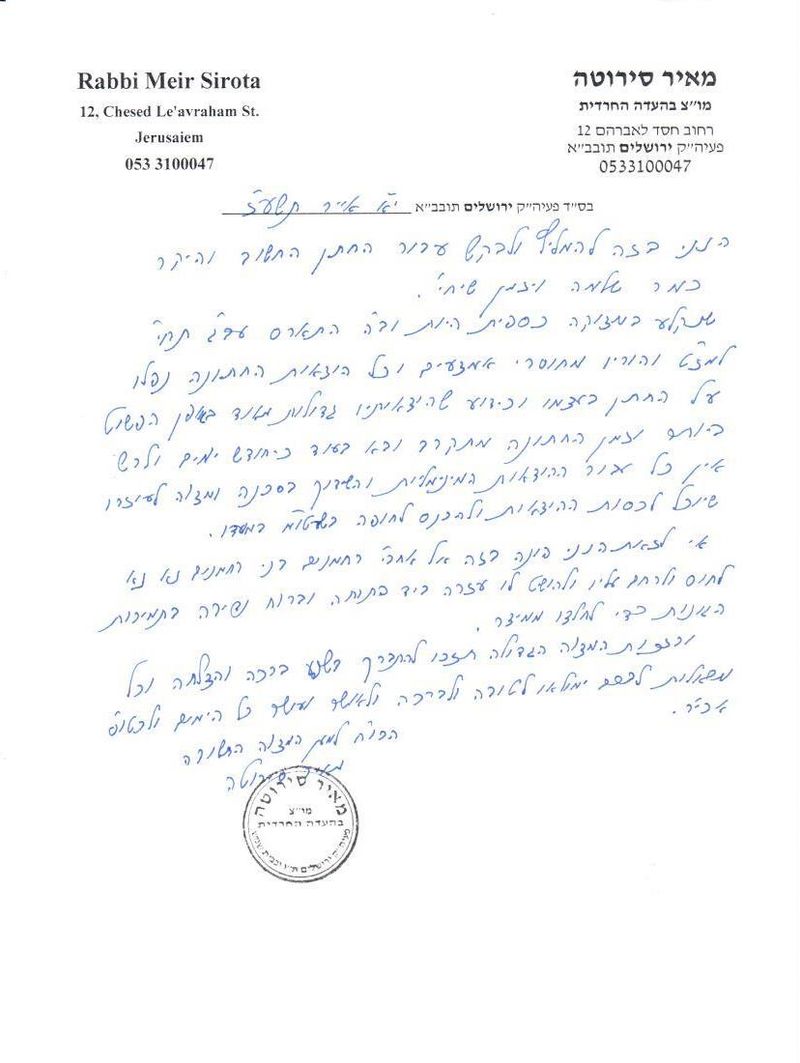 Rabbi Meir Sirota
12, Chesed Le'avraham St.
Jerusaiem
053 3100047
מאיר סירוטה
מו״צ בהעדה החרדית
רחוב חסד לאברהם 12
פעיה״ק ירושלים תובב״א
0533100047
בס״ד פעיה״ק ירושלים תובב״א י״א אייר תשע״ג
הנני בזה להמליץ ולבקש עבור החתן החשוב והיקר
כמר שלמה ויזמן שיחי׳.
שנקלע במצוקה כספית היות וב״ה התארס עב״ג תחי׳
למז״ט והוריו מחוסרי אמצעים וכל הוצאות החתונה נפלו
על החתן בעצמו וכידוע שההוצאות גדולות מאוד באופן הפשוט
ביותר וזמן החתונה מתקרב ובא בעוד כחודש ימים ולרש
אין כל עבור ההוצאות המינימליות והשידוך בסכנה ומצוה לעוזרו
שיוכל לכסות ההוצאות ולהכנס לחופה בשעטו״מ במועדו.
אי לזאת הנני פונה בזה אל אחב״י רחמנים בני רחמנים נא נא
לחוס ולרחם עליו ולהושיט לו עזרה ביד פתוחה וברוח נדיבה בתמיכות
הגונות כדי לחלצו ממיצר.
ובזכות המצוה הגדולה תזכו להתברך בשפע ברכה והצלחה וכל
משאלות לבכם ימולאו לטובה ולברכה ולאושר ועושר כל הימים ולכטו״ס
אכי״ר.
הכו״ח למען המצוה החשובה
מאיר סירוטה
מאיר סירוטה
מו״צ
בהעדה החרדית
פעיה״ק ירושלים ת״ו